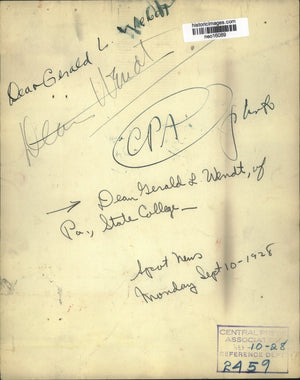 historicimages.com
neo16069
Dean Gerald L. Wendt
Dean Wendt
CPA
photo
→ Dean Gerald L Wendt, of
Pa., State College—
Spot News
Monday Sept 10-1928
CENTRAL PRESS
ASSOCIATION
SEP-10-28
REFERENCE DEPT
2459